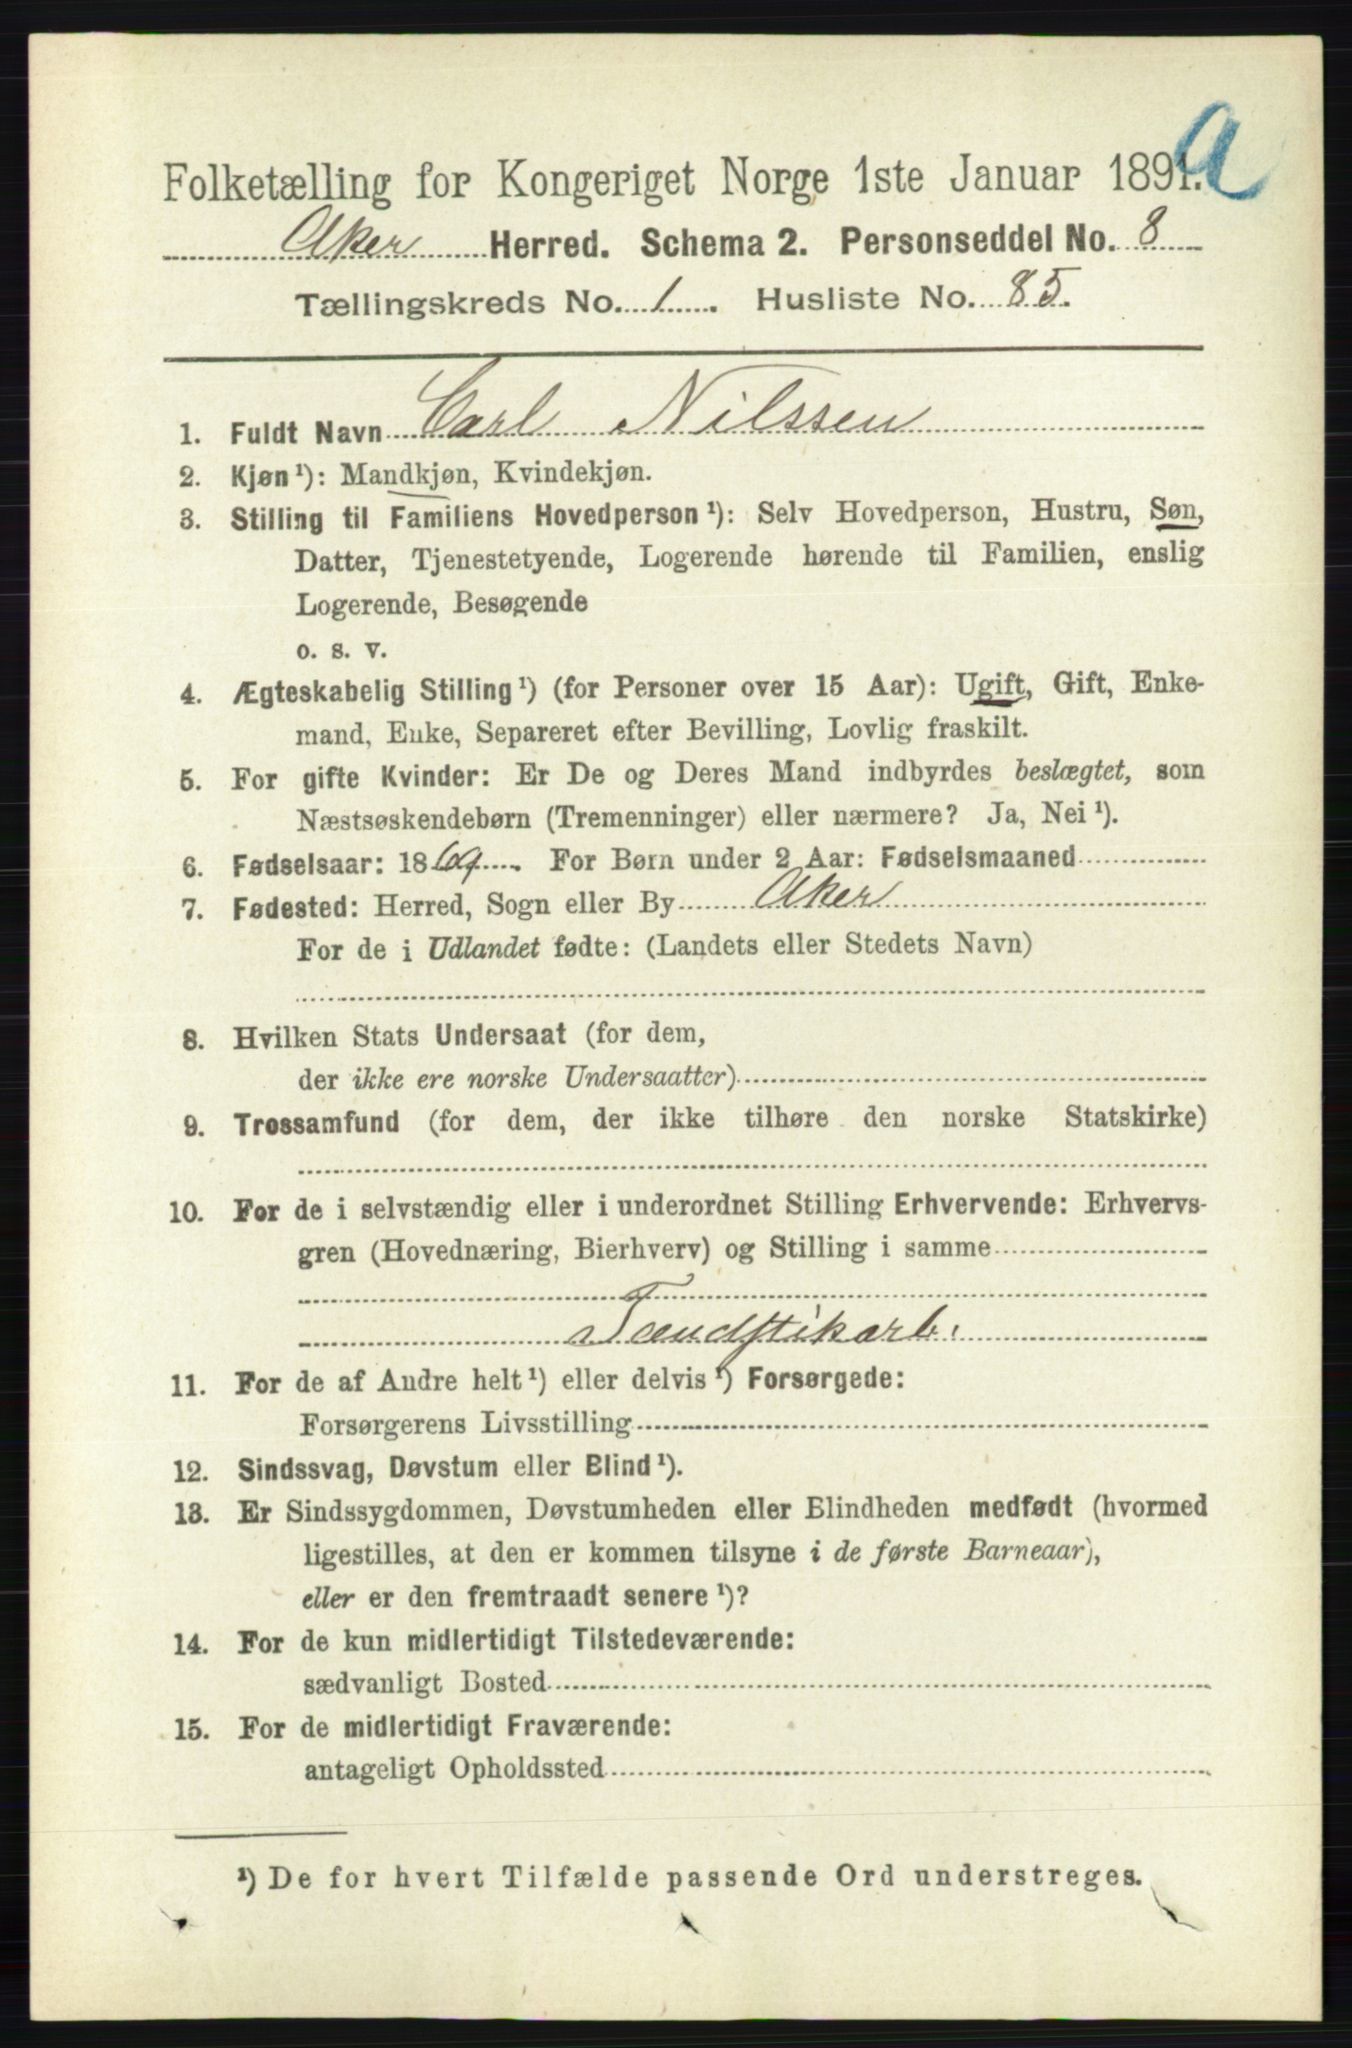 a
Folketælling for Kongeriget Norge 1ste Januar 1891.
Aker Herred. Schema 2. Personseddel No. 8
Tællingskreds No. 1. Husliste No. 85.
1. Fuldt Navn Carl Nilssen
2. Kjøn¹): Mandkjøn, Kvindekjøn.
3. Stilling til Familiens Hovedperson¹): Selv Hovedperson, Hustru, Søn,
Datter, Tjenestetyende, Logerende hørende til Familien, enslig
Logerende, Besøgende
o. s. v.
4. Ægteskabelig Stilling¹) (for Personer over 15 Aar): Ugift, Gift, Enke-
mand, Enke, Separeret efter Bevilling, Lovlig fraskilt.
5. For gifte Kvinder: Er De og Deres Mand indbyrdes beslægtet, som
Næstsøskendebørn (Tremenninger) eller nærmere? Ja, Nei¹).
6. Fødselsaar: 1869. For Børn under 2 Aar: Fødselsmaaned
7. Fødested: Herred, Sogn eller By Aker
For de i Udlandet fødte: (Landets eller Stedets Navn)
8. Hvilken Stats Undersaat (for dem,
der ikke ere norske Undersaatter)
9. Trossamfund (for dem, der ikke tilhøre den norske Statskirke)
10. For de i selvstændig eller i underordnet Stilling Erhvervende: Erhvervs-
gren (Hovednæring, Bierhverv) og Stilling i samme
Tændstikarb.
11. For de af Andre helt¹) eller delvis¹) Forsørgede:
Forsørgerens Livsstilling
12. Sindssvag, Døvstum eller Blind¹).
13. Er Sindssygdommen, Døvstumheden eller Blindheden medfødt (hvormed
ligestilles, at den er kommen tilsyne i de første Barneaar),
eller er den fremtraadt senere¹)?
14. For de kun midlertidigt Tilstedeværende:
sædvanligt Bosted
15. For de midlertidigt Fraværende:
antageligt Opholdssted
¹) De for hvert Tilfælde passende Ord understreges.